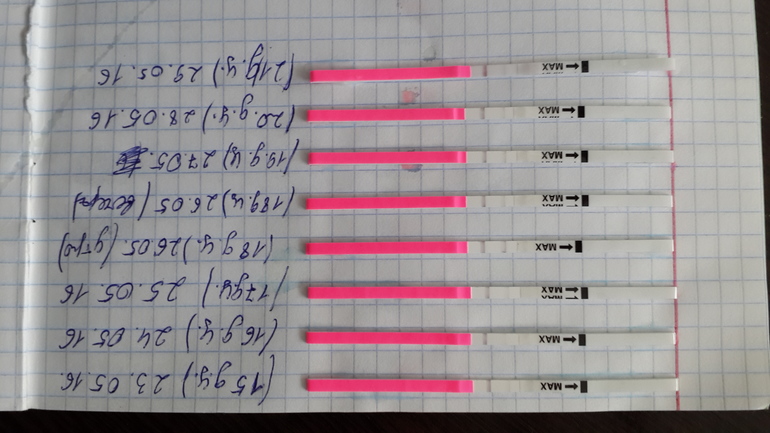 MAX (15 д.ц.) 23.05.16.
MAX (16 д.ц.) 24.05.16
MAX (17 д.ц.) 25.05.16
MAX (18 д.ц.) 26.05. (утро)
MAX (18 д.ц.) 26.05 (вечер)
MAX (19 д.ц.) 27.05.
MAX (20 д.ц.) 28.05.16
MAX (21 д.ц.) 29.05.16